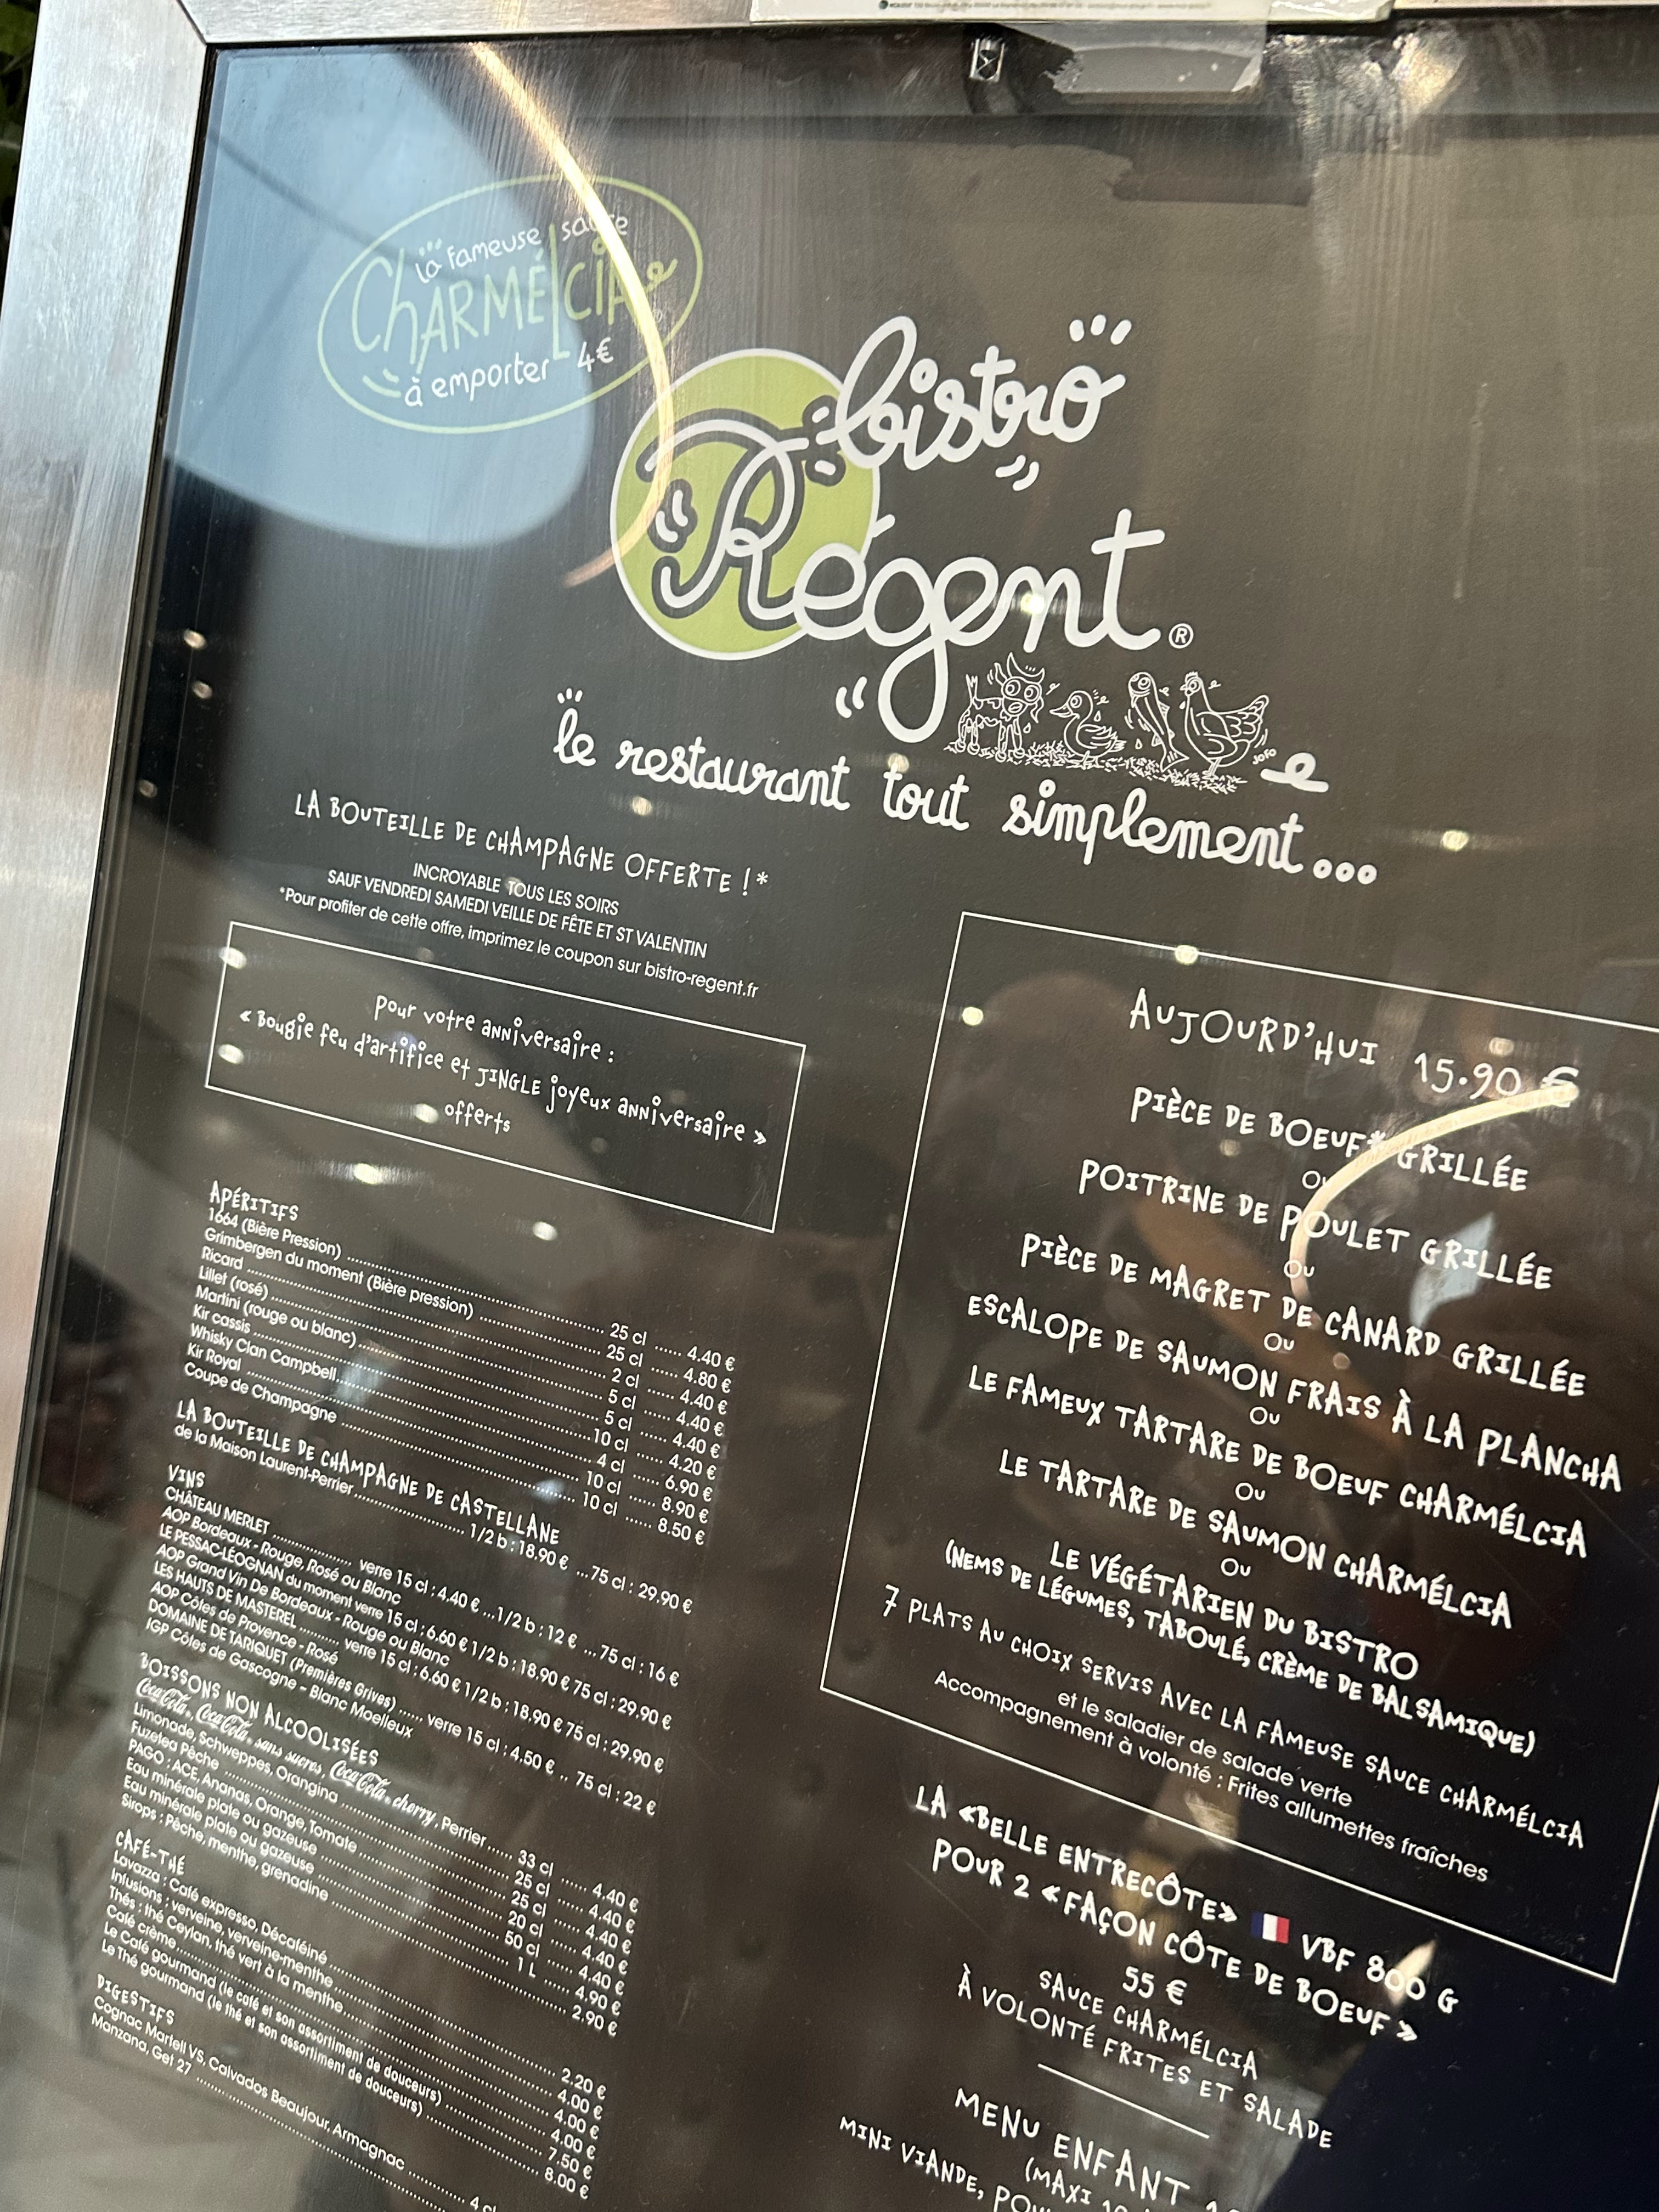 la fameuse sauce
CHARMÉLCIA
à emporter 4€
bistro
Régent®
le restaurant tout simplement...
JOFO
LA BOUTEILLE DE CHAMPAGNE OFFERTE !*
INCROYABLE TOUS LES SOIRS
SAUF VENDREDI SAMEDI VEILLE DE FÊTE ET ST VALENTIN
*Pour profiter de cette offre, imprimez le coupon sur bistro-regent.fr
Pour votre anniversaire :
« Bougie feu d'artifice et JINGLE joyeux anniversaire »
offerts
APÉRITIFS
1664 (Bière Pression) ........ 25 cl ...... 4.40 €
Grimbergen du moment (Bière pression) ........ 25 cl ...... 4.80 €
Ricard ........ 2 cl ...... 4.40 €
Lillet (rosé) ........ 5 cl ...... 4.40 €
Martini (rouge ou blanc) ........ 5 cl ...... 4.40 €
Kir cassis ........ 10 cl ...... 4.20 €
Whisky Clan Campbell ........ 4 cl ...... 6.90 €
Kir Royal ........ 10 cl ...... 8.90 €
Coupe de Champagne ........ 10 cl ...... 8.50 €
LA BOUTEILLE DE CHAMPAGNE DE CASTELLANE
de la Maison Laurent-Perrier ........ 1/2 b : 18.90 € ...75 cl : 29.90 €
VINS
CHÂTEAU MERLET ........ verre 15 cl : 4.40 € ...1/2 b : 12 € ...75 cl : 16 €
AOP Bordeaux - Rouge, Rosé ou Blanc
LE PESSAC-LÉOGNAN du moment verre 15 cl : 6.60 € 1/2 b : 18.90 € 75 cl : 29.90 €
AOP Grand Vin De Bordeaux - Rouge ou Blanc
LES HAUTS DE MASTEREL ........ verre 15 cl : 6.60 € 1/2 b : 18.90 € 75 cl : 29.90 €
AOP Côtes de Provence - Rosé
DOMAINE DE TARIQUET (Premières Grives) ...... verre 15 cl : 4.50 € .. 75 cl : 22 €
IGP Côtes de Gascogne - Blanc Moelleux
BOISSONS NON ALCOOLISÉES
Coca-Cola®, Coca-Cola® sans sucres, Coca-Cola® cherry, Perrier ... 33 cl ...... 4.40 €
Limonade, Schweppes, Orangina ........ 25 cl ...... 4.40 €
Fuzetea Pêche ........ 25 cl ...... 4.40 €
PAGO : ACE, Ananas, Orange, Tomate ........ 20 cl ...... 4.40 €
Eau minérale plate ou gazeuse ........ 50 cl ...... 4.40 €
Eau minérale plate ou gazeuse ........ 1 L ...... 4.90 €
Sirops : Pêche, menthe, grenadine ........ 2.90 €
CAFÉ-THÉ
Lavazza : Café expresso, Décaféiné ........ 2.20 €
Infusions : verveine, verveine-menthe ........ 4.00 €
Thés : thé Ceylan, thé vert à la menthe ........ 4.00 €
Café crème ........ 4.00 €
Le Café gourmand (le café et son assortiment de douceurs) ........ 7.50 €
Le Thé gourmand (le thé et son assortiment de douceurs) ........ 8.00 €
DIGESTIFS
Cognac Martell VS, Calvados Beaujour, Armagnac ........ 4 cl
Manzana, Get 27 ........
AUJOURD'HUI 15.90 €
PIÈCE DE BOEUF* GRILLÉE
OU
POITRINE DE POULET GRILLÉE
OU
PIÈCE DE MAGRET DE CANARD GRILLÉE
OU
ESCALOPE DE SAUMON FRAIS À LA PLANCHA
OU
LE FAMEUX TARTARE DE BOEUF CHARMÉLCIA
OU
LE TARTARE DE SAUMON CHARMÉLCIA
OU
LE VÉGÉTARIEN DU BISTRO
(NEMS DE LÉGUMES, TABOULÉ, CRÈME DE BALSAMIQUE)
7 PLATS AU CHOIX SERVIS AVEC LA FAMEUSE SAUCE CHARMÉLCIA
et le saladier de salade verte
Accompagnement à volonté : Frites allumettes fraîches
LA «BELLE ENTRECÔTE» VBF 800 G
POUR 2 « FAÇON CÔTE DE BOEUF »
55 €
SAUCE CHARMÉLCIA
À VOLONTÉ FRITES ET SALADE
MENU ENFANT
(MAXI
MINI VIANDE,